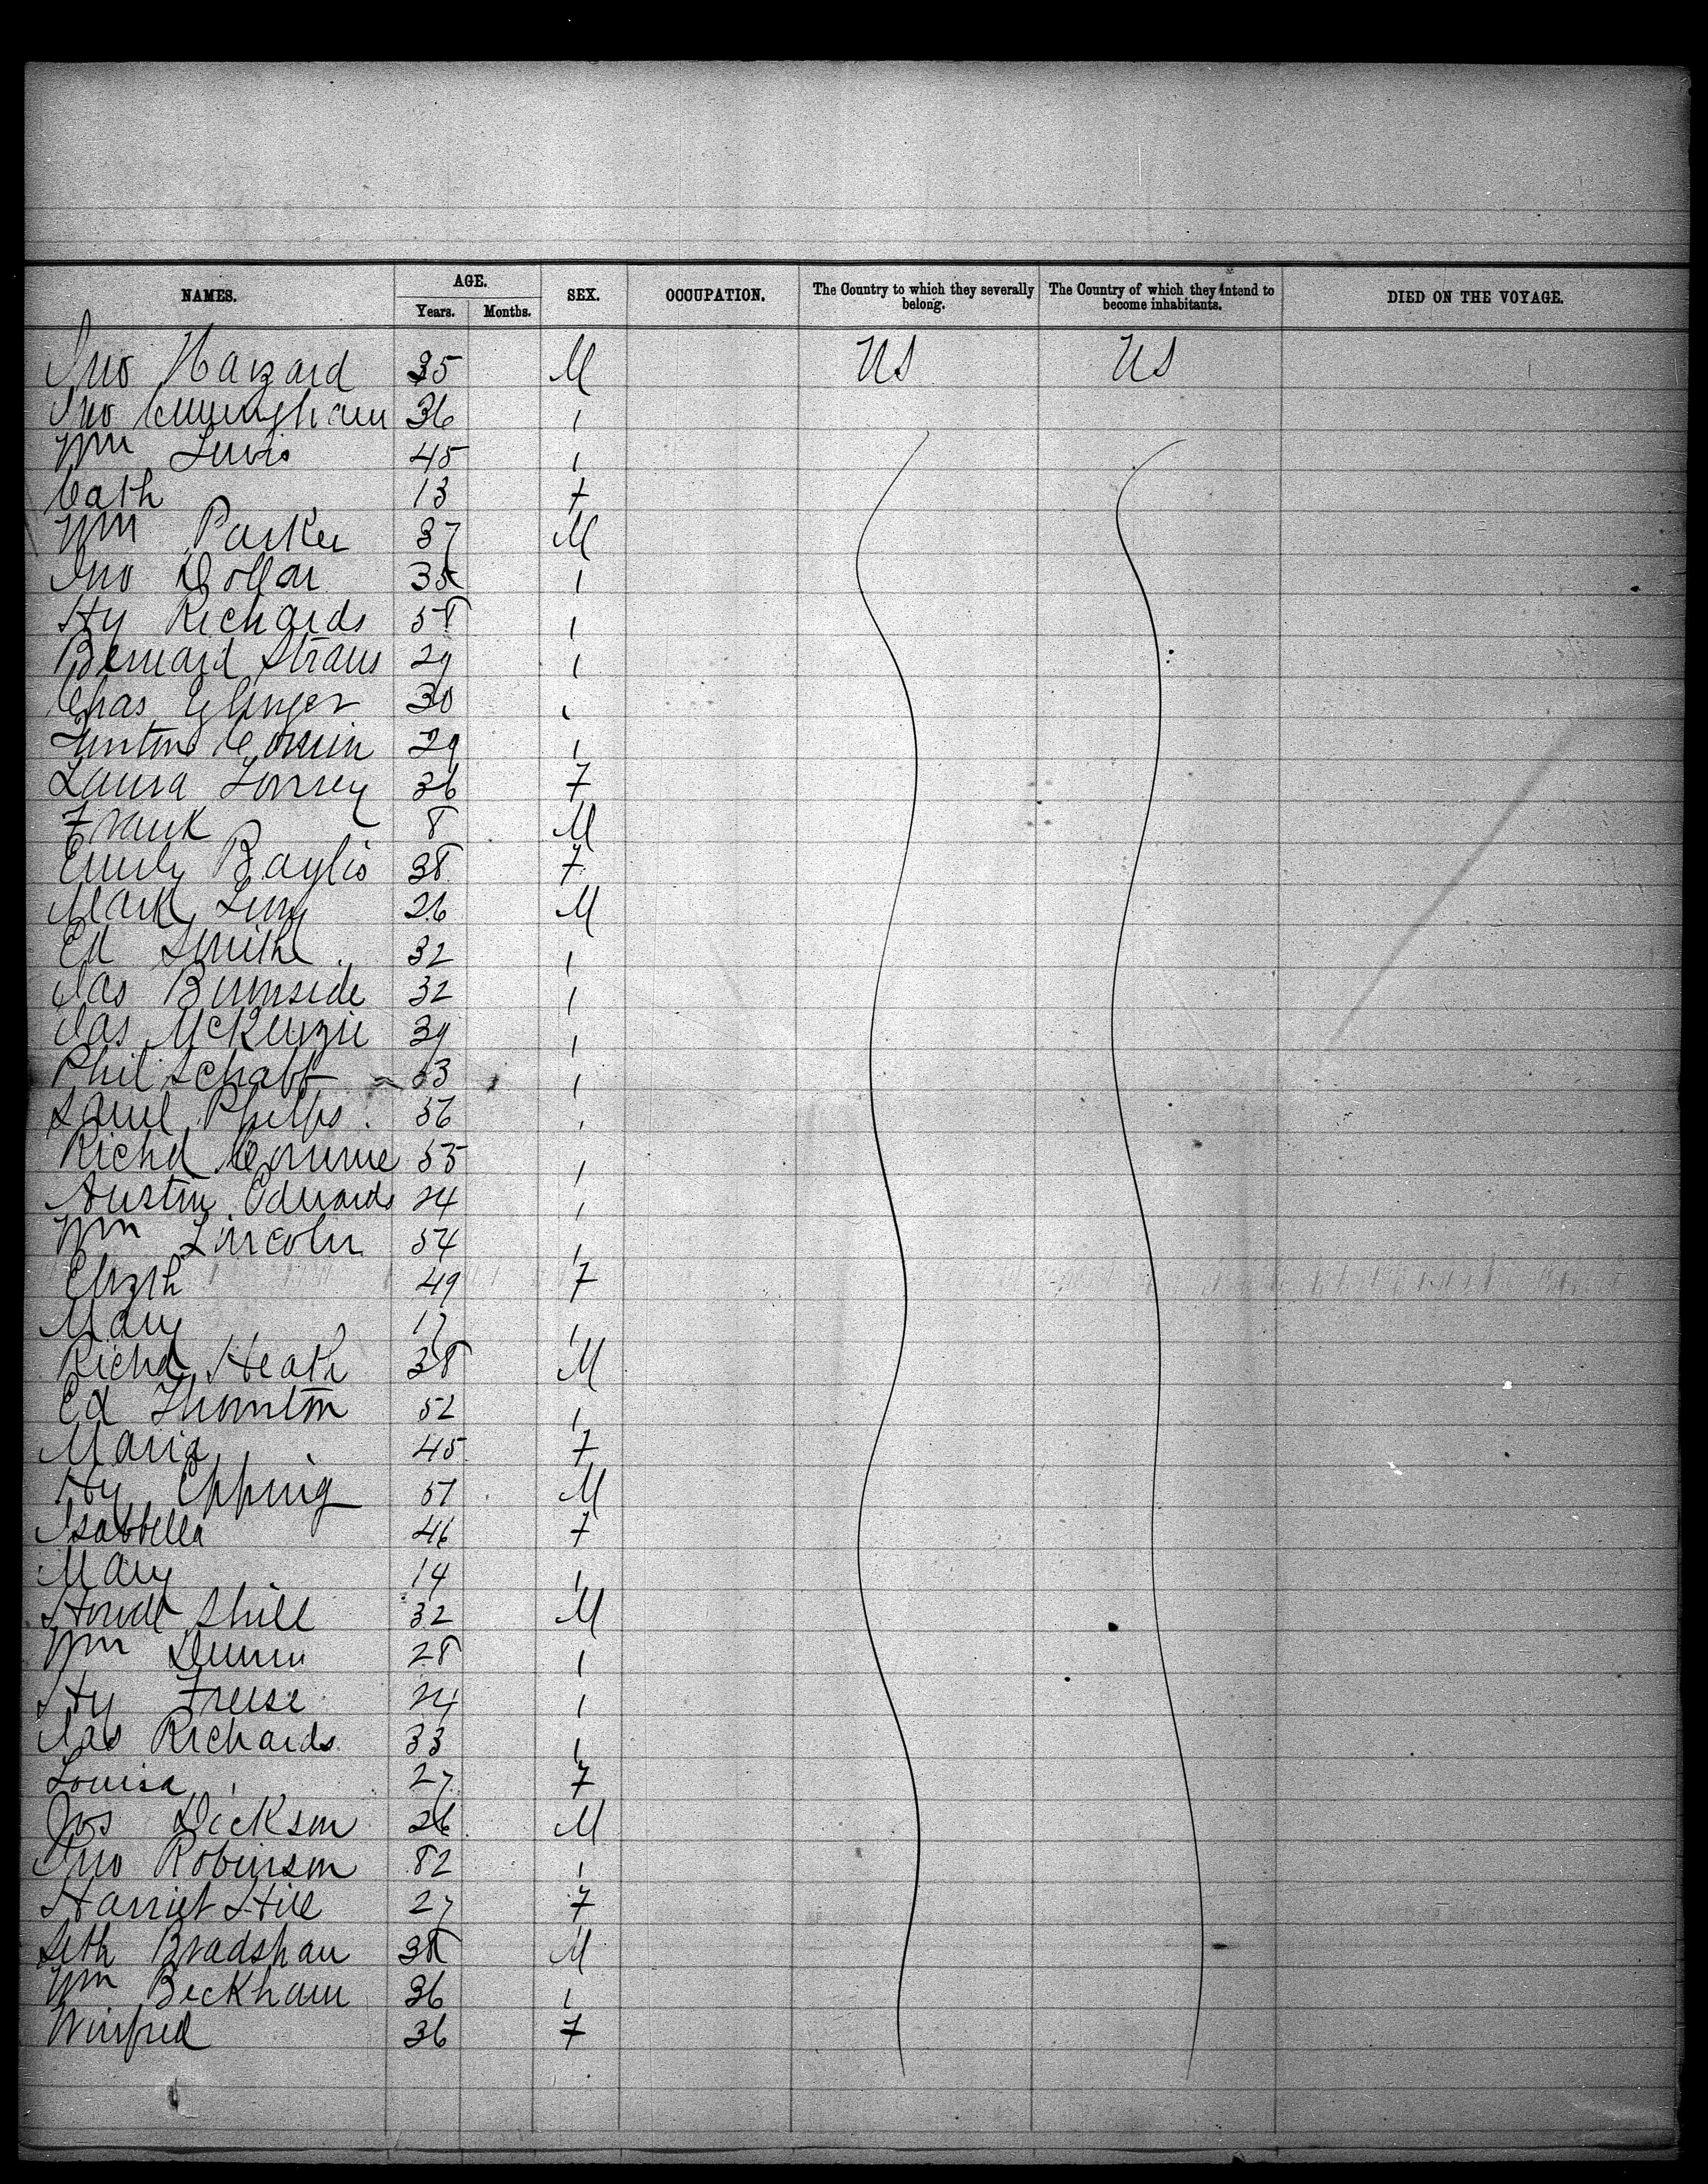 NAMES. AGE. SEX. OCCUPATION. The Country to which they severally belong. The Country of which they intend to become inhabitants. DIED ON THE VOYAGE.
Years. Months.
Jno Hazard 35 M US US
Jno Cunningham 36 ,
Wm Lewis 45 ,
Cath 13 F
Wm Parker 37 M
Jno Dollar 35 ,
Hy Richards 58 ,
Bernard Straus 29 ,
Chas 30 ,
29 ,
Laura 36 F
Frank 8 M
Emily Baylis 38 F
Mark Levy 26 M
Ed Smith 32 ,
Jas Burnside 32 ,
Jas McKenzie 39 ,
Phil Schaff 53 ,
Saml Phelps 56 ,
Richd 55 ,
Austin Edwards 24 ,
Wm Lincoln 54 ,
Elizth 49 F
Mary 17 ,
Richd Heath 38 M
Ed Thornton 52 ,
Maria 45 F
Hy Epping 57 M
Isabbella 46 F
Mary 14 ,
Shill 32 M
Wm Dunn 28 ,
Hy Freese 24 ,
Jas Richards 33 ,
Louisa 27 F
Jos Dickson 26 M
Jno Robinson 82 ,
Harriet Hill 27 F
Seth Bradshaw 38 M
Wm Beckham 36 ,
Winfred 36 F